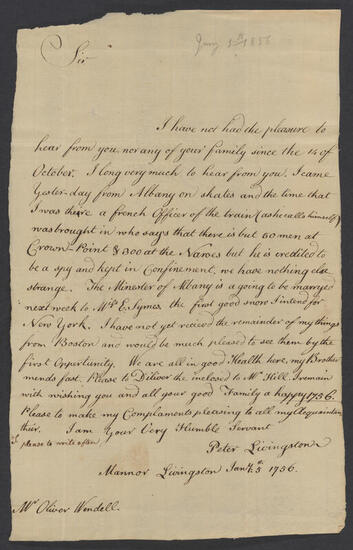 Jany 5th 1756
Sir
I have not had the pleasure to
hear from you nor any of your family since the 14 of
October. I long very much to hear from you. I came
Yester-day from Albany on skates and the time that
I was there a french Officer of the train (as he calls himself)
was brought in who says that there is but 60 men at
Crown-Point & 300 at the Narows but he is credited to
be a spy and kept in Confinement, we have nothing else
strange. The Minester of Albany is a going to be maryed
next week to Mrs E. Symes the first good snow I intend for
New York. I have not yet recieved the remainder of my things
from Boston and would be much pleased to see them by the
first Opertunity. We are all in good Health here, my Brother
mends fast. Please to Diliver the inclosed to Mr Hill. I remain
with wishing you and all your good Family a happy 1756.
Please to make my Complaments pleasing to all my Acquaintan
their. I am Your Very Humble Servant
please to write often
Peter Livingston
Mannor Livingston Jany 5th 1756.
Mr Oliver Wendell.